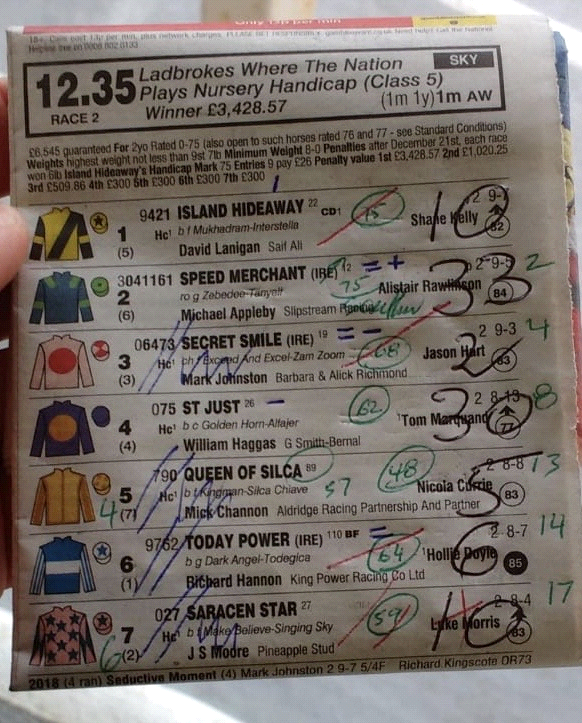 12.35 Ladbrokes Where The Nation
Plays Nursery Handicap (Class 5)
SKY
RACE 2 Winner £3,428.57 (1m 1y) 1m AW
£6,545 guaranteed For 2yo Rated 0-75 (also open to such horses rated 76 and 77 - see Standard Conditions)
Weights highest weight not less than 9st 7lb Minimum Weight 8-0 Penalties after December 21st, each race
won 6lb Island Hideaway's Handicap Mark 75 Entries 9 pay £26 Penalty value 1st £3,428.57 2nd £1,020.25
3rd £509.86 4th £300 5th £300 6th £300 7th £300
9421 ISLAND HIDEAWAY 22 CD1 75 Shane Kelly 2 9-7
1 Hc1 b f Mukhadram-Interstella 82
(5) David Lanigan Saif Ali
3041161 SPEED MERCHANT (IRE) 12 = + 75 Alistair Rawlinson 2 9-5 2
2 ro g Zebedee-Tanyeli 3 84
(6) Michael Appleby Slipstream Racing
06473 SECRET SMILE (IRE) 19 = - 68 Jason Hart 2 9-3 4
3 Hc1 ch f Exceed And Excel-Zam Zoom 83
(3) Mark Johnston Barbara & Alick Richmond
075 ST JUST 26 - 62 1Tom Marquand 2 8-13 8
4 Hc1 b c Golden Horn-Alfajer 3 77
(4) William Haggas G Smith-Bernal
790 QUEEN OF SILCA 89 48 Nicola Currie 2 8-8 13
5 Hc1 b f Kingman-Silca Chiave 57 83
4 (7) Mick Channon Aldridge Racing Partnership And Partner
9762 TODAY POWER (IRE) 110 BF = 64 1Hollie Doyle 2 8-7 14
6 b g Dark Angel-Todegica 85
(1) Richard Hannon King Power Racing Co Ltd
027 SARACEN STAR 27 59 Luke Morris 2 8-4 17
7 Hc1 b f Make Believe-Singing Sky 83
6 (2) J S Moore Pineapple Stud
2018 (4 ran) Seductive Moment (4) Mark Johnston 2 9-7 5/4F Richard Kingscote OR73